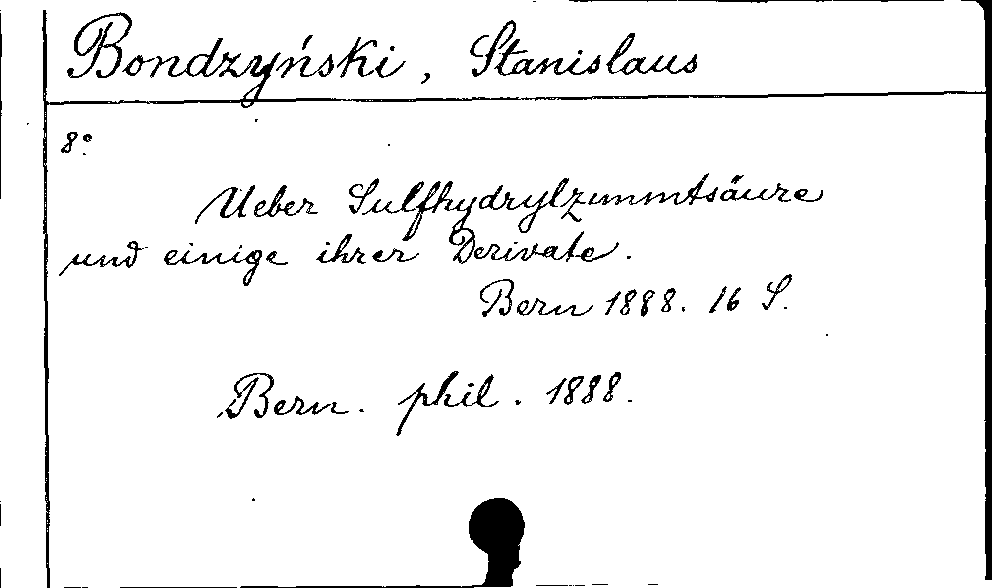 Bondzyński, Stanislaus
8°
Ueber Sulfhydrylzimmtsäure
und einige ihrer Derivate.
Bern 1888. 16 S.
Bern. phil. 1888.